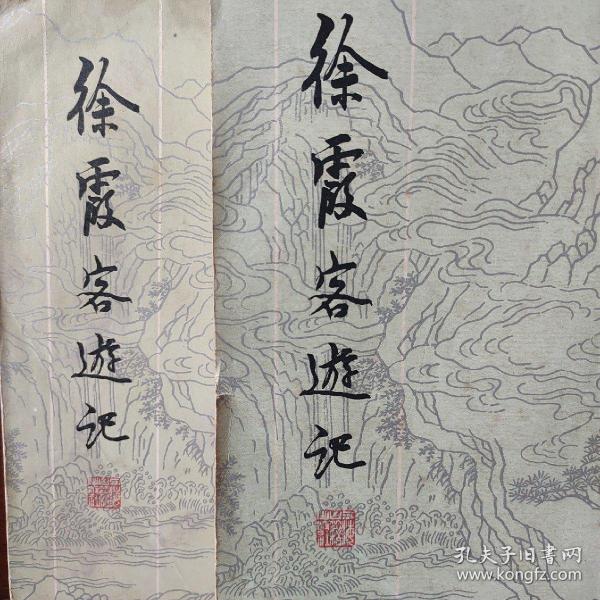 徐霞客遊记
徐霞客遊记
孔夫子旧書网
www.kongfz.com